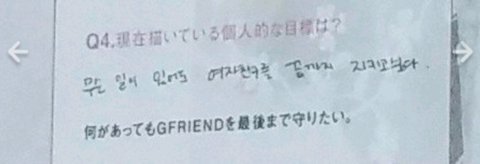 Q4.現在描いている個人的な目標は?
무슨 일이 있어도 여자친구를 끝까지 지키고싶다.
何があってもGFRIENDを最後まで守りたい。